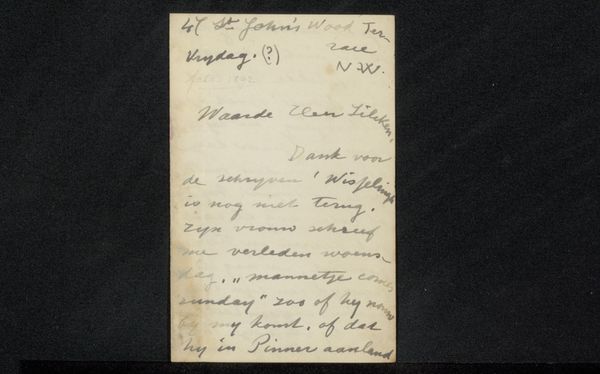 47 St John's Wood Ter-
race
Vrydag. (?) N.W.
Waarde Heer Zilcken,
Dank voor
de schryven! Wisselingh
is nog niet terug.
Zyn vrouw schreef
me verleden woens-
dag, „mannetje comes
sunday" zoo of hy
by my komt, of dat
hy in Pinner aanland